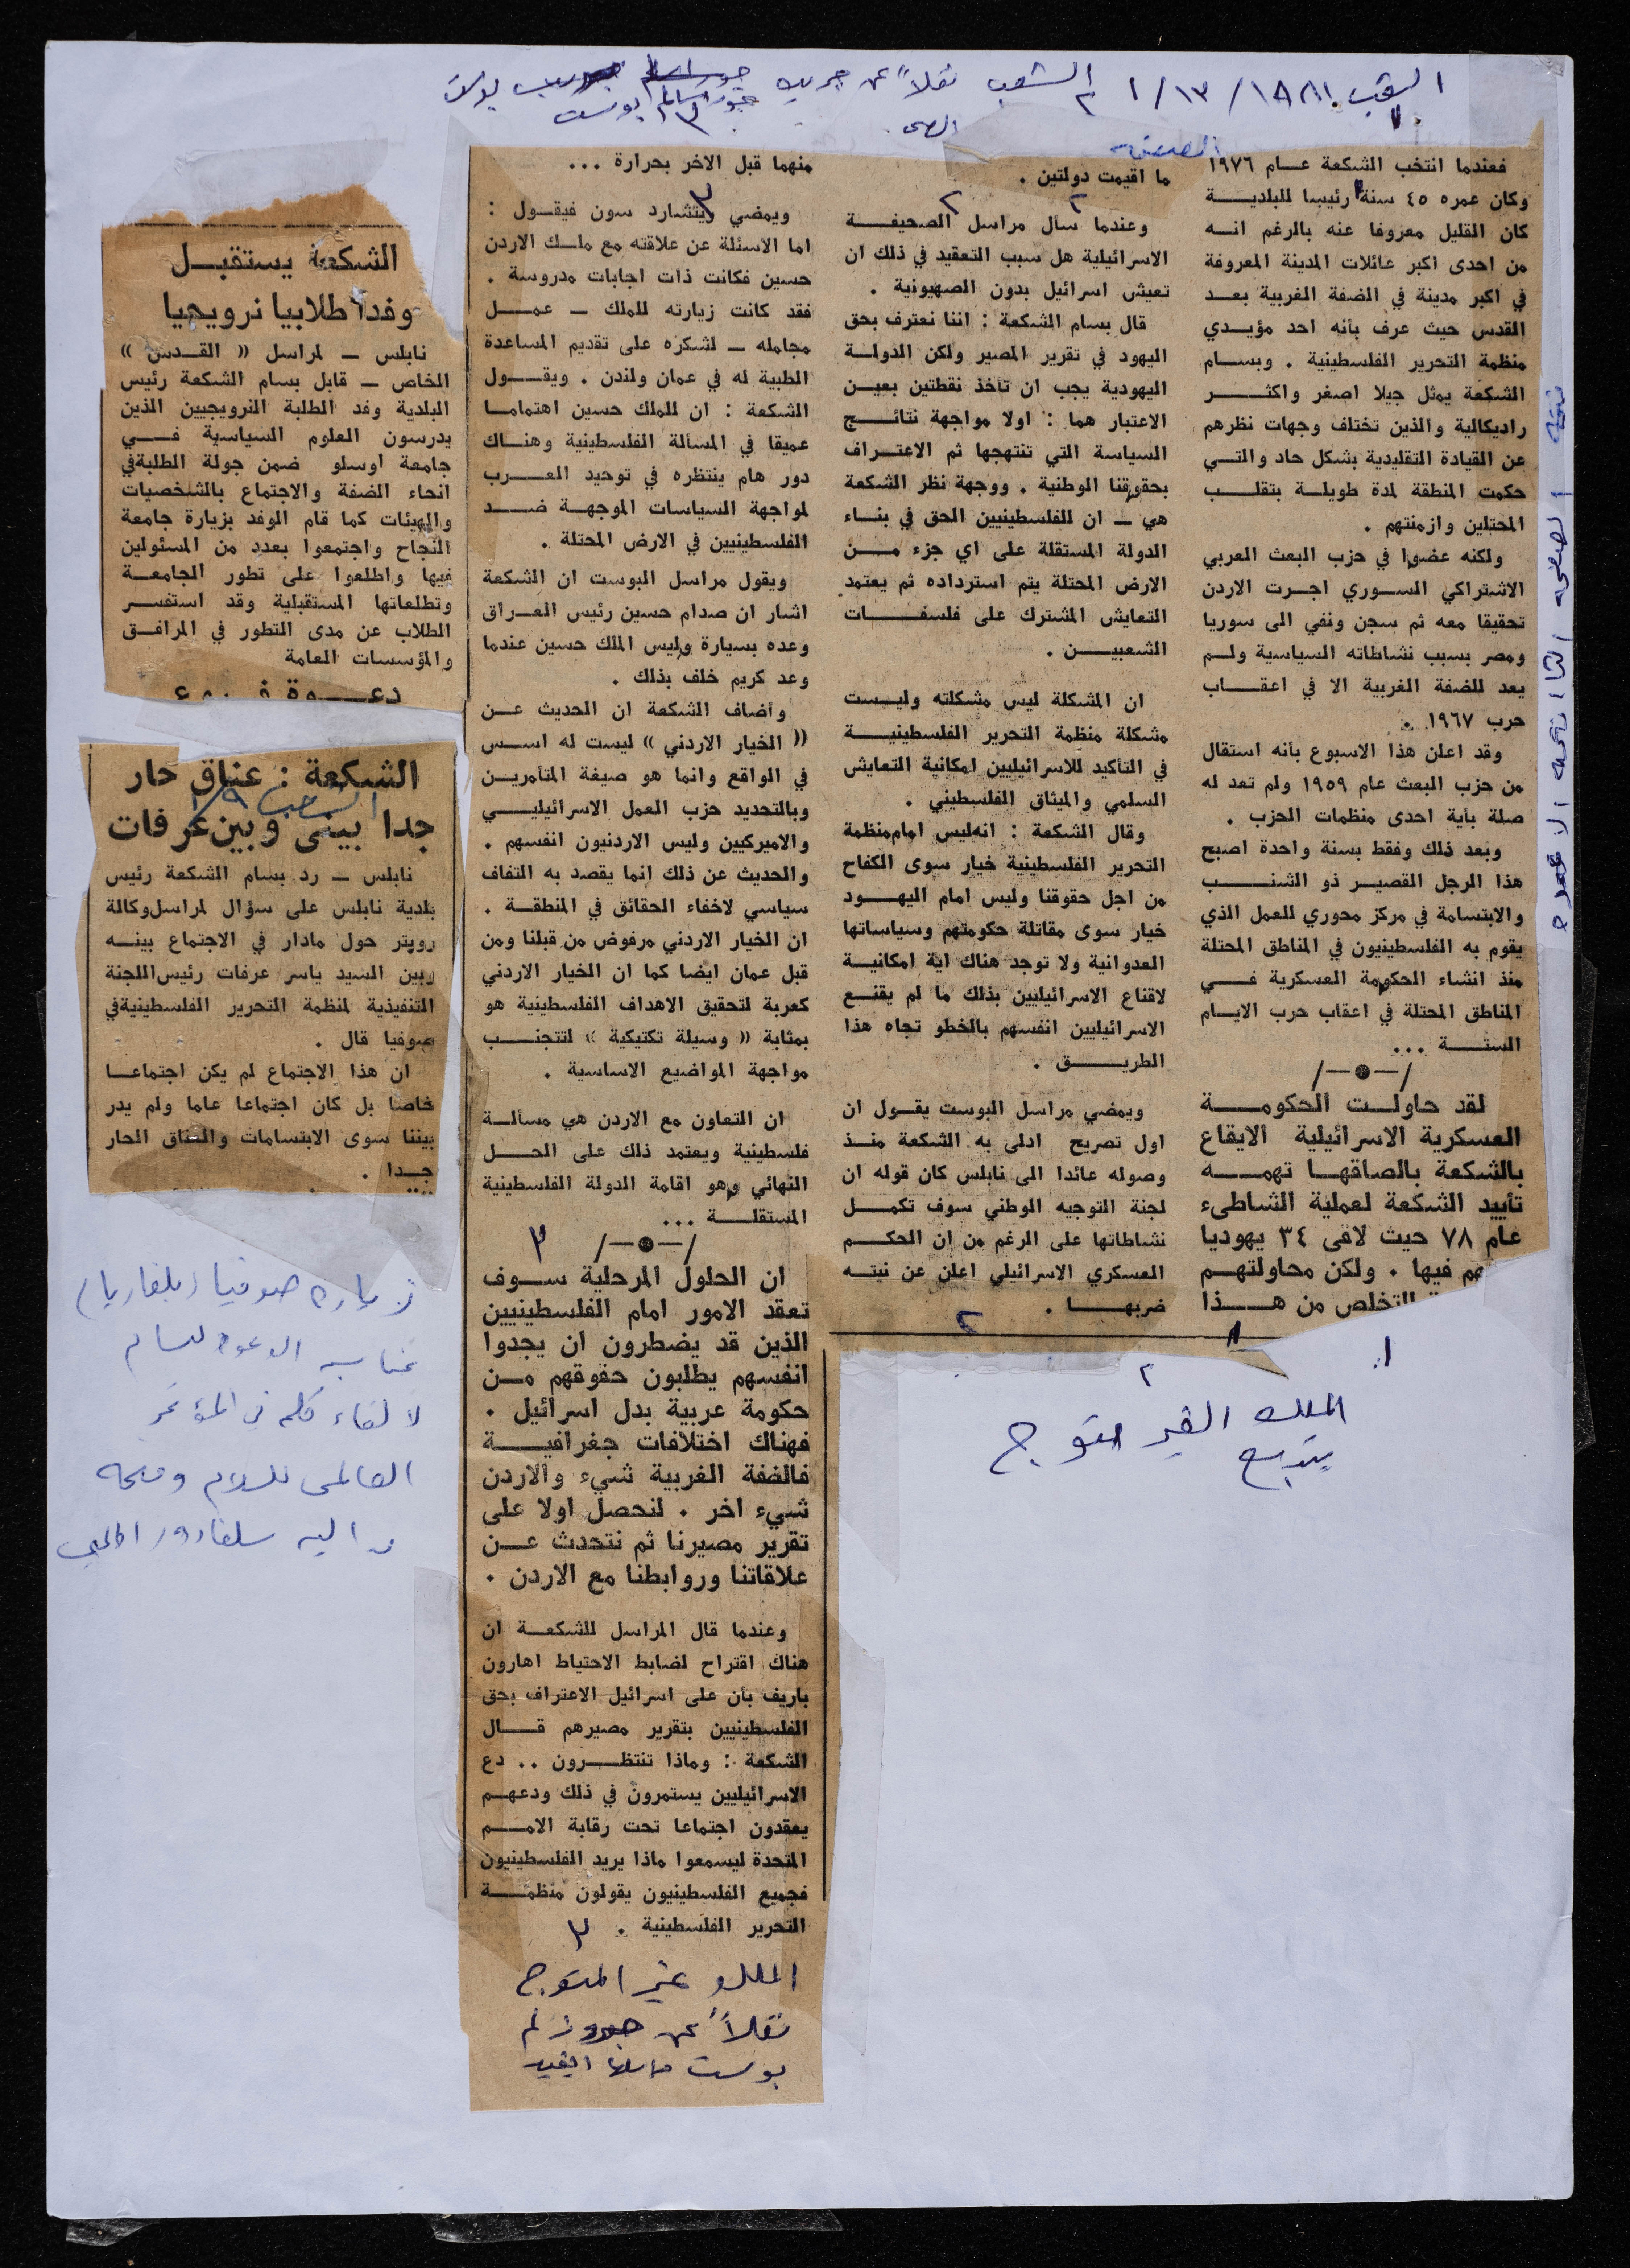 الشعب ١٣/١/١٩٨١ الشعب نقلاً عن جريدة
جيروساليم بوست
فعندما انتخب الشكعة عــام ١٩٧٦
وكان عمره ٤٥ سنة رئيسا للبلديـــة
كان القليل معروفا عنه بالرغم انــه
من احدى اكبر عائلات المدينة المعروفة
في اكبر مدينة في الضفة الغربية بعــد
القدس حيث عرف بأنه احد مؤيــدي
منظمة التحرير الفلسطينية . وبســام
الشكعة يمثل جيلا اصغر واكثـــر
راديكالية والذين تختلف وجهات نظرهم
عن القيادة التقليدية بشكل حاد والتــي
حكمت المنطقة لمدة طويلــة بتقلــب
المحتلين وازمنتهم .
ولكنه عضوا في حزب البعث العربي
الاشتراكي الســوري اجــرت الاردن
تحقيقا معه ثم سجن ونفي الى سوريا
ومصر بسبب نشاطاته السياسية ولــم
يعد للضفة الغربية الا في اعقــاب
حرب ١٩٦٧ .
وقد اعلن هذا الاسبوع بأنه استقال
من حزب البعث عام ١٩٥٩ ولم تعد له
صلة بأية احدى منظمات الحزب .
وبعد ذلك وفقط بسنة واحدة اصبح
هذا الرجل القصيــر ذو الشنــب
والابتسامة في مركز محوري للعمل الذي
يقوم به الفلسطينيون في المناطق المحتلة
منذ انشاء الحكومة العسكرية فــي
المناطق المحتلة في اعقاب حرب الايــام
الستــة ...
لقد حاولــت الحكومــة
العسكرية الاسرائيلية الايقاع
بالشكعة بالصاقهــا تهمــه
تأييد الشكعة لعملية الشاطىء
عام ٧٨ حيث لاقى ٣٤ يهوديا
هم فيها . ولكن محاولتهــم
التخلص من هــذا
ما اقيمت دولتين .
وعندما سأل مراسل الصحيفــة
الاسرائيلية هل سبب التعقيد في ذلك ان
تعيش اسرائيل بدون الصهيونية .
قال بسام الشكعة : اننا نعترف بحق
اليهود في تقرير المصير ولكن الدولــة
اليهودية يجب ان تأخذ نقطتين بعيــن
الاعتبار هما : اولا مواجهة نتائــج
السياسة التي تنتهجها ثم الاعتــراف
بحقوقنا الوطنية . ووجهة نظر الشكعة
هي ــ ان للفلسطينيين الحق في بنــاء
الدولة المستقلة على اي جزء مــن
الارض المحتلة يتم استرداده ثم يعتمد
التعايش المشترك على فلسفــات
الشعبيــن .
ان المشكلة ليس مشكلته وليــست
مشكلة منظمة التحرير الفلسطينيــة
في التأكيد للاسرائيليين لمكانية التعايش
السلمي والميثاق الفلسطيني .
وقال الشكعة : انه ليس امام منظمة
التحرير الفلسطينية خيار سوى الكفاح
من اجل حقوقنا وليس امام اليهــود
خيار سوى مقاتلة حكومتهم وسياساتها
العدوانية ولا توجد هناك اية امكانيــة
لاقناع الاسرائيليين بذلك ما لم يقنــع
الاسرائيليين انفسهم بالخطو تجاه هذا
الطريــق .
ويمضي مراسل البوست يقــول ان
اول تصريح ادلى به الشكعة منــذ
وصوله عائدا الى نابلس كان قوله ان
لجنة التوجيه الوطني سوف تكمــل
نشاطاتها على الرغم من ان الحكــم
العسكري الاسرائيلي اعلن عن نيتــه
ضربهــا .
الملك الغير متوج
يتبع
منهما قبل الاخر بحرارة ...
ويمضي ريتشارد سون فيقــول :
اما الاسئلة عن علاقته مع ملــك الاردن
حسين فكانت ذات اجابات مدروسة .
فقد كانت زيارته للملك ــ عمــل
مجامله ــ لشكره على تقديم المساعدة
الطبية له في عمان ولندن . ويقــول
الشكعة : ان للملك حسين اهتمامــا
عميقا في المسألة الفلسطينية وهنــاك
دور هام ينتظره في توحيد العــرب
لمواجهة السياسات الموجهــة ضــد
الفلسطينيين في الارض المحتلة .
ويقول مراسل البوست ان الشكعة
اشار ان صدام حسين رئيس العــراق
وعده بسيارة وليس الملك حسين عندما
وعد كريم خلف بذلك .
وأضاف الشكعة ان الحديث عــن
(( الخيار الاردني )) ليست له اســس
في الواقع وانما هو صيغة المتآمريــن
وبالتحديد حزب العمل الاسرائيليــي
والاميركيين وليس الاردنيون انفسهم .
والحديث عن ذلك انما يقصد به التفاف
سياسي لاخفاء الحقائق في المنطقــة .
ان الخيار الاردني مرفوض من قبلنا ومن
قبل عمان ايضا كما ان الخيار الاردني
كعربة لتحقيق الاهداف الفلسطينية هو
بمثابة (( وسيلة تكتيكية )) لتتجنــب
مواجهة المواضيع الاساسية .
ان التعاون مع الاردن هي مسألــة
فلسطينية ويعتمد ذلك على الحــل
النهائي وهو اقامة الدولة الفلسطينية
المستقلــة ...
ان الحلول المرحلية ســوف
تعقد الامور امام الفلسطينيين
الذين قد يضطرون ان يجدوا
انفسهم يطلبون حقوقهم مــن
حكومة عربية بدل اسرائيل .
فهناك اختلافات جغرافيــة
فالضفة الغربية شيء والاردن
شيء اخر . لنحصل اولا على
تقرير مصيرنا ثم نتحدث عــن
علاقاتنا وروابطنا مع الاردن .
وعندما قال المراسل للشكعــة ان
هناك اقتراح لضابط الاحتياط اهارون
باريف بأن على اسرائيل الاعتراف بحق
الفلسطينيين بتقرير مصيرهم قــال
الشكعة : وماذا تنتظــرون .. دع
الاسرائيليين يستمرون في ذلك ودعهــم
يعقدون اجتماعا تحت رقابة الامــم
المتحدة ليسمعوا ماذا يريد الفلسطينيون
فجميع الفلسطينيون يقولون منظمــة
التحرير الفلسطينية .
الملك غير المتوج
نقلاً عن جيروزلم
بوست
الشكعة يستقبــل
وفدا طلابيا نرويجيا
نابلس ــ لمراسل (( القــدس ))
الخاص ــ قابل بسام الشكعة رئيس
البلدية وفد الطلبة النرويجيين الذين
يدرسون العلوم السياسية فــي
جامعة اوسلو ضمن جولة الطلبة في
انحاء الضفة والاجتماع بالشخصيات
والهيئات كما قام الوفد بزيارة جامعة
النجاح واجتمعوا بعدد من المسئولين
فيها واطلعوا على تطور الجامعــة
وتطلعاتها المستقبلية وقد استفســر
الطلاب عن مدى التطور في المرافــق
والمؤسسات العامة
الشكعة : عناق حار
الشعب ١/٩
جدا بيني وبين عرفات
نابلس ــ رد بسام الشكعة رئيس
بلدية نابلس على سؤال لمراسل وكالة
رويتر حول مادار في الاجتماع بينــه
وبين السيد ياسر عرفات رئيس اللجنة
التنفيذية لمنظمة التحرير الفلسطينية في
صوفيا قال .
ان هذا الاجتماع لم يكن اجتماعــا
خاصا بل كان اجتماعا عاما ولم يدر
بيننا سوى الابتسامات والعناق الحار
جــدا .
زيارة صوفيا (بلغاريا)
بمناسبة الدعوة لبسام
لالقاء كلمة في المؤتمر
العالمي للسلام ومنحه
سلفادور